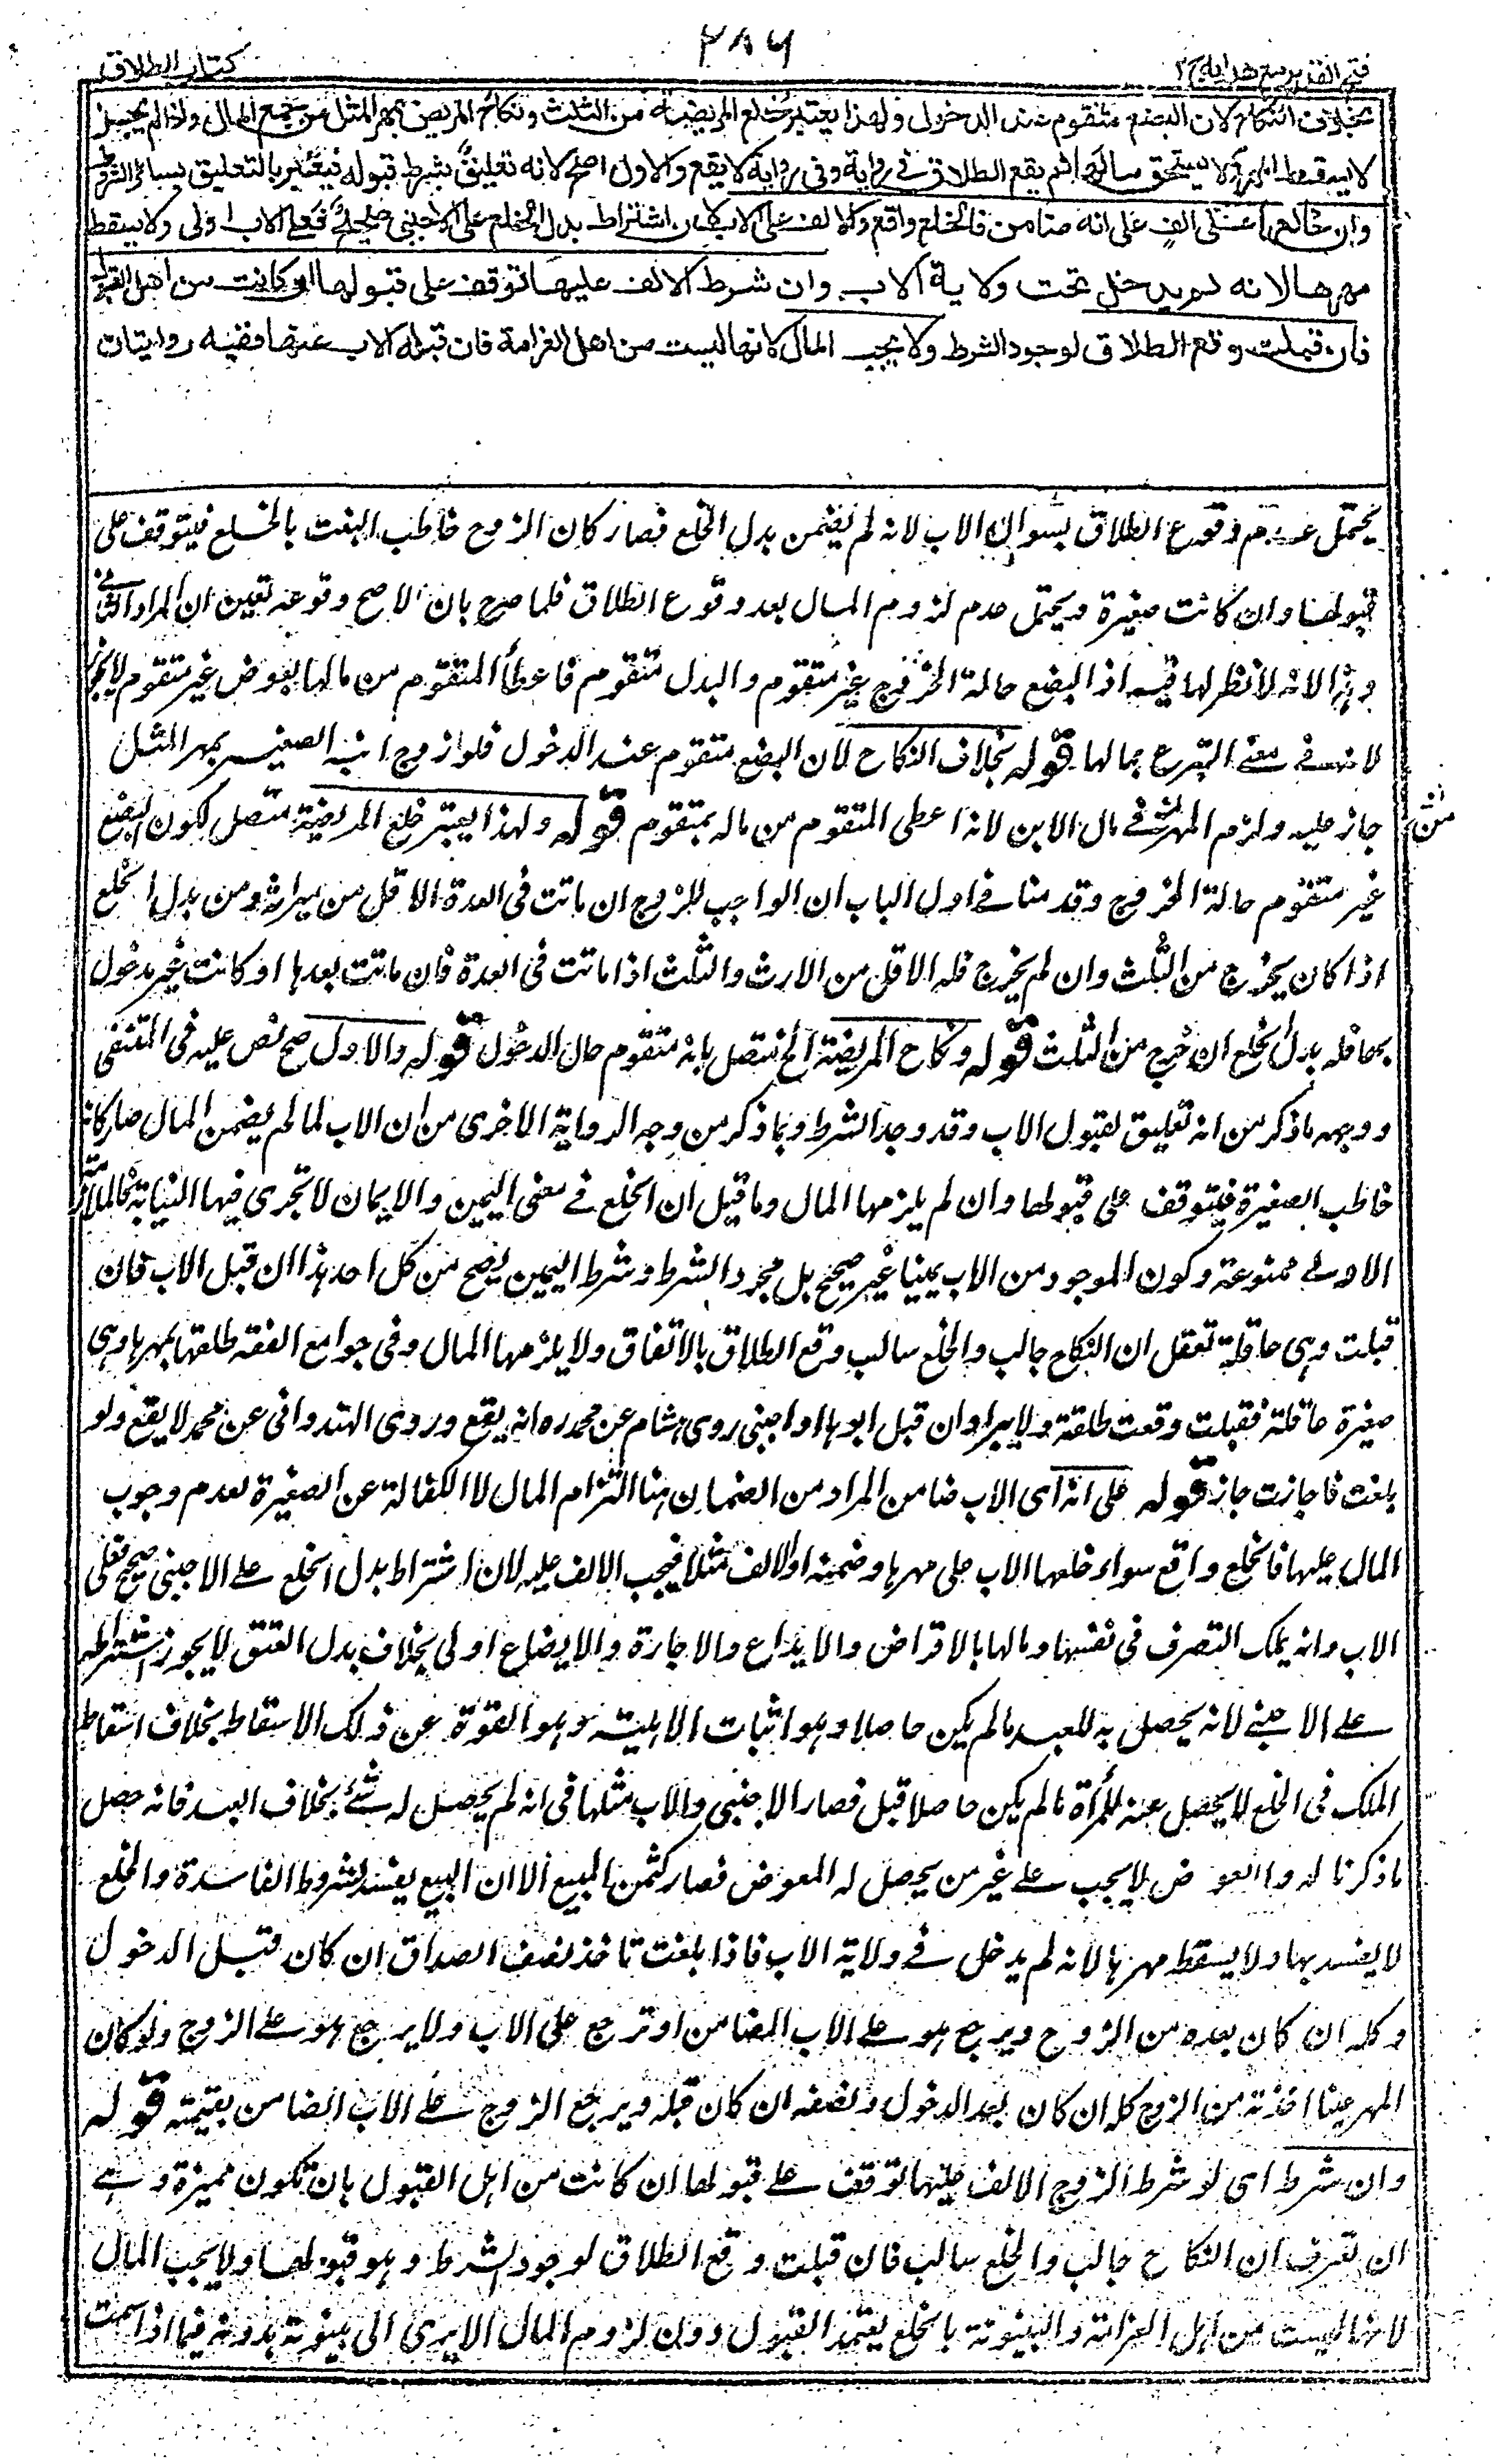 ٢٨٦
فتح القدير مع هدايه ج٢
كتاب الطلاق
بخلاف النكاح لان البضع متقوم عند الدخول ولهذا يعتبر خلع المريضة من الثلث ونكاح المريض بمهر المثل من جميع المال واذا لم يجز
لا يسقط المهر ولا يستحق مالها ثم يقع الطلاق في رواية وفي رواية لا يقع والاول اصح لانه تعليق بشرط قبوله فيعتبر بالتعليق بسائر الشروط
وان خالعها على الف على انه ضامن فالخلع واقع والالف على الاب لان اشتراط بدل الخلع على الاجنبي صحيح فعلى الاب اولى ولا يسقط
مهرها لانه لم يدخل تحت ولاية الاب وان شرط الالف عليها توقف على قبولها ان كانت من اهل القبول
فان قبلت وقع الطلاق لوجود الشرط ولا يجب المال لانها ليست من اهل الغرامة فان قبله الاب عنها ففيه روايتان
يحتمل عدم وقوع الطلاق بسوال الاب لانه لم يضمن بدل الخلع فصار كان الزوج خاطب البنت بالخلع فيتوقف على
قبولها وان كانت صغيرة ويحتمل عدم لزوم المال بعد وقوع الطلاق فلما صرح بان الاصح وقوعه تعين ان المراد الثاني
وهذا لانه لا نظر لها فيه اذ البضع حالة الخروج غير متقوم والبدل متقوم فاعطأ المتقوم من مالها بعوض غير متقوم لا يجوز
لانه في معنى التبرع بمالها قوله بخلاف النكاح لان البضع متقوم عند الدخول فلو ازوج ابنه الصغير بمهر المثل
جاز عليه ولزم المهر في مال الابن لانه اعطى المتقوم من ماله بمتقوم قوله ولهذا يعتبر خلع المريضة متصل بكون البضع
غير متقوم حالة الخروج وقدمنا في اول الباب ان الواجب للزوج ان ماتت في العدة الاقل من ميراثه ومن بدل الخلع
اذا كان يخرج من الثلث وان لم يخرج فله الاقل من الارث والثلث اذا ماتت في العدة فان ماتت بعدها او كانت غير مدخول
بها فله بدل الخلع ان خرج من الثلث قوله ونكاح المريضة الخ متصل بانه متقوم حال الدخول قوله والاول صح نص عليه في المنتقى
ووجهه ما ذكر من انه تعليق لقبول الاب وقد وجد الشرط وبما ذكر من وجه الرواية الاخرى من ان الاب لما لم يضمن المال صار كانه
خاطب الصغيرة فيتوقف على قبولها وان لم يلزمها المال وما قيل ان الخلع في معنى اليمين والايمان لا تجرى فيها النيابة فالملازمة
الاولى ممنوعة وكون الموجود من الاب يمينا غير صحيح بل مجرد الشرط وشرط اليمين يصح من كل احد هذا ان قبل الاب فان
قبلت وهى عاقلة تعقل ان النكاح جالب والخلع سالب وقع الطلاق بالاتفاق ولا يلزمها المال وفى جوامع الفقه طلقها بمهرها وهى
صغيرة عاقلة فقبلت وقعت طلقة ولا يبرا وان قبل ابوها او اجنبى روى هشام عن محمد ره انه يقع وروى الهندوانى عن محمد لا يقع ولو
بلغت فاجازت جاز قوله على انه اى الاب ضامن المراد من الضمان هنا التزام المال لا الكفالة عن الصغيرة لعدم وجوب
المال عليها فالخلع واقع سواء خلعها الاب على مهرها وضمنه او الالف مثلا فيجب الالف عليه لان اشتراط بدل الخلع على الاجنبى صحيح فعلى
الاب وانه يملك التصرف في نفسها ومالها بالاقراض والايداع والاجارة والابضاع اولى بخلاف بدل العتق لا يجوز اشتراطه
على الاجنبى لانه يحصل به للعبد ما لم يكن حاصلا وهو اثبات الاهلية وهو القوة عن ذلك الاسقاط بخلاف اسقاط
الملك فى الخلع لا يحصل عنه للمرأة ما لم يكن حاصلا قبل فصار الاجنبى والاب مثلها فى انه لم يحصل له شئ بخلاف العبد فانه حصل
ما ذكرنا له والعوض لا يجب على غير من يحصل له المعوض فصار كثمن المبيع الا ان البيع يفسد بالشروط الفاسدة والخلع
لا يفسد بها ولا يسقط مهرها لانه لم يدخل فى ولاية الاب فاذا بلغت تاخذ نصف الصداق ان كان قبل الدخول
وكله ان كان بعده من الزوج ويرجع هو على الاب الضامن او ترجع على الاب ولا يرجع هو على الزوج ولو كان
المهر عينا اخذته من الزوج كله ان كان بعد الدخول ونصفه ان كان قبله ويرجع الزوج على الاب الضامن بقيمته قوله
وان شرط اى لو شرط الزوج الالف عليها توقف على قبولها ان كانت من اهل القبول بان تكون مميزة وهى
ان تعرف ان النكاح جالب والخلع سالب فان قبلت وقع الطلاق لوجود الشرط وهو قبولها ولا يجب المال
لانها ليست من اهل الغرامة والبينونة بالخلع يعتمد القبول دون لزوم المال الا يرى الى بينونته بدونه فيما اذا سمت